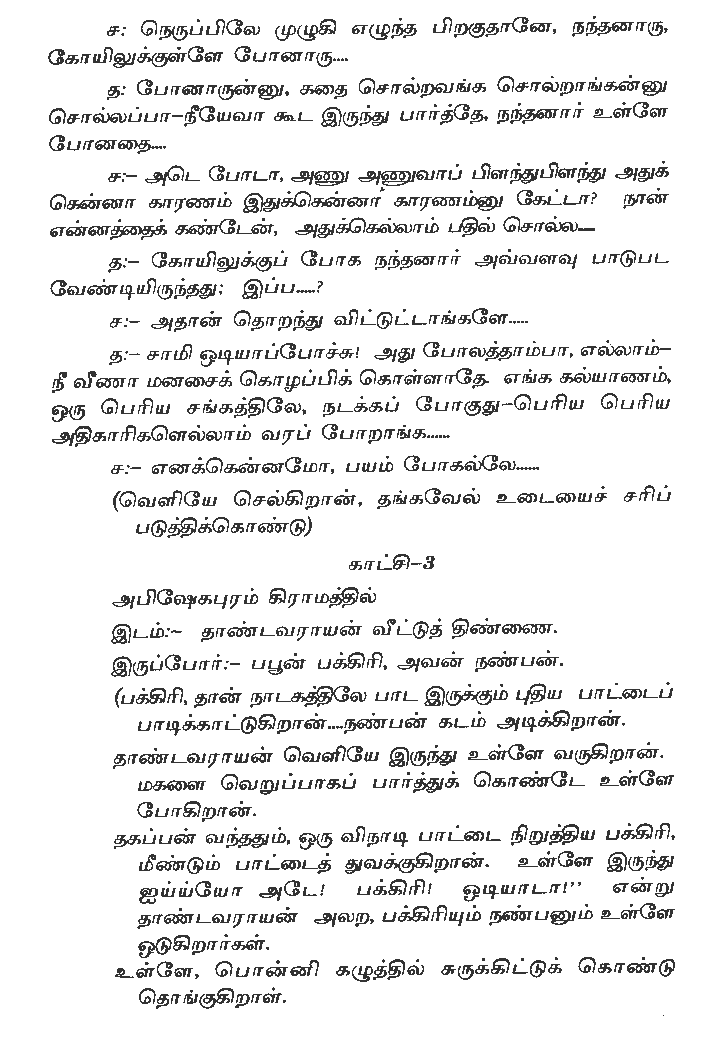 ச: நெருப்பிலே முழுகி எழுந்த பிறகுதானே, நந்தனாரு,
கோயிலுக்குள்ளே போனாரு....
த: போனாருன்னு, கதை சொல்றவங்க சொல்றாங்கண்னு
சொல்லப்பா—நீயேவா கூட இருந்து பார்த்தே, நந்தனார் உள்ளே
போனதை....
ச:— அடெ போடா, அணு அணுவாப் பிளந்துபிளந்து அதுக்
கென்னா காரணம் இதுக்கென்னா காரணம்னு கேட்டா? நான்
என்னத்தைக் கண்டேன், அதுக்கெல்லாம் பதில் சொல்ல....
த:— கோயிலுக்குப் போக நந்தனார் அவ்வளவு பாடுபட
வேண்டியிருந்தது; இப்ப.....?
ச:— அதான் தொறந்து விட்டுட்டாங்களே.....
த:— சாமி ஒடியாப்போச்சு! அது போலத்தாம்பா, எல்லாம்—
நீ வீணா மனசைக் கொழப்பிக் கொள்ளாதே. எங்க கல்யாணம்,
ஒரு பெரிய சங்கத்திலே, நடக்கப் போகுது—பெரிய பெரிய
அதிகாரிகளெல்லாம் வரப் போறாங்க......
ச:— எனக்கென்னமோ, பயம் போகல்லே......
(வெளியே செல்கிறான், தங்கவேல் உடையைச் சரிப்
படுத்திக்கொண்டு)
காட்சி—3
அபிஷேகபுரம் கிராமத்தில்
இடம்:— தாண்டவராயன் வீட்டுத் திண்ணை.
இருப்போர்:— பபூன் பக்கிரி, அவன் நண்பன்.
(பக்கிரி, தான் நாடகத்திலே பாட இருக்கும் புதிய பாட்டைப்
பாடிக்காட்டுகிறான்....நண்பன் கடம் அடிக்கிறான்.
தாண்டவராயன் வெளியே இருந்து உள்ளே வருகிறான்.
மகளை வெறுப்பாகப் பார்த்துக் கொண்டே உள்ளே
போகிறான்.
தகப்பன் வந்ததும், ஒரு விநாடி பாட்டை நிறுத்திய பக்கிரி,
மீண்டும் பாட்டைத் துவக்குகிறான். உள்ளே இருந்து
ஐய்யையோ அடே! பக்கிரி! ஒடியாடா!'' என்று
தாண்டவராயன் அலற, பக்கிரியும் நண்பனும் உள்ளே
ஒடுகிறார்கள்.
உள்ளே, பொன்னி கழுத்தில் சுருக்கிட்டுக் கொண்டு
தொங்குகிறாள்.